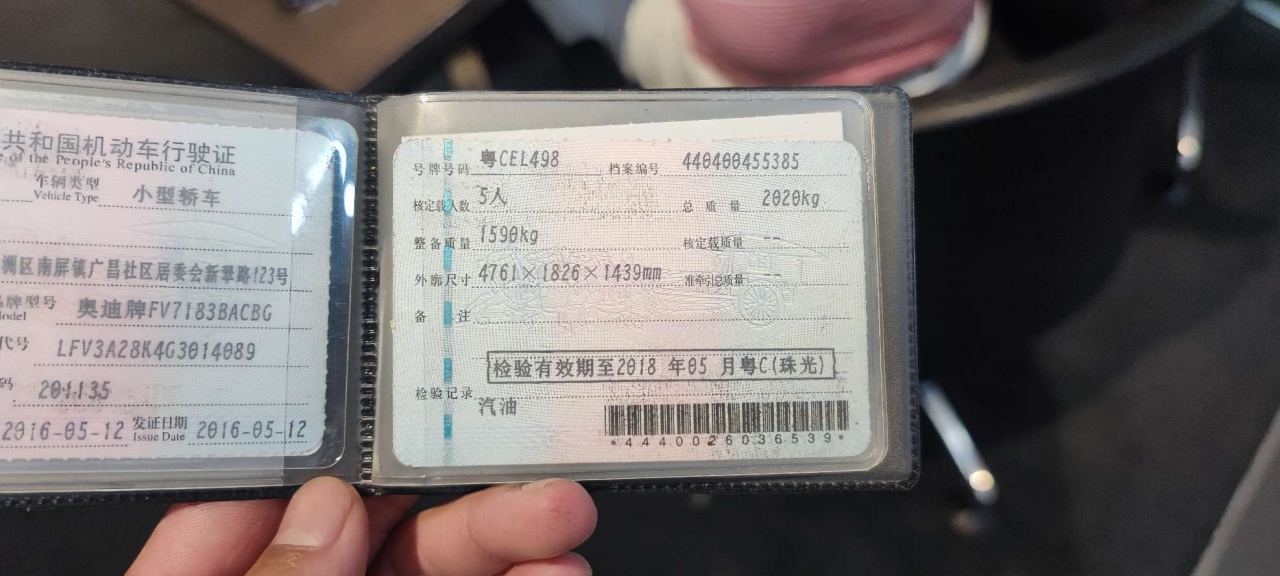 共和国机动车行驶证
of the People's Republic of China
车辆类型 小型轿车
Vehicle Type
洲区南屏镇广昌社区居委会新翠路123号
牌型号 奥迪牌FV7183BACBG
Model
代号 LFV3A28K4G3014089
码 201135
2016-05-12 发证日期 2016-05-12
Issue Date
号牌号码 粤CEL498 档案编号 440400455385
核定载人数 5人 总质量 2020kg
整备质量 1590kg 核定载质量 --
外廓尺寸 4761×1826×1439mm 准牵引总质量 --
备注
检验有效期至2018 年05 月粤C(珠光)
检验记录
汽油
*4440026036539*